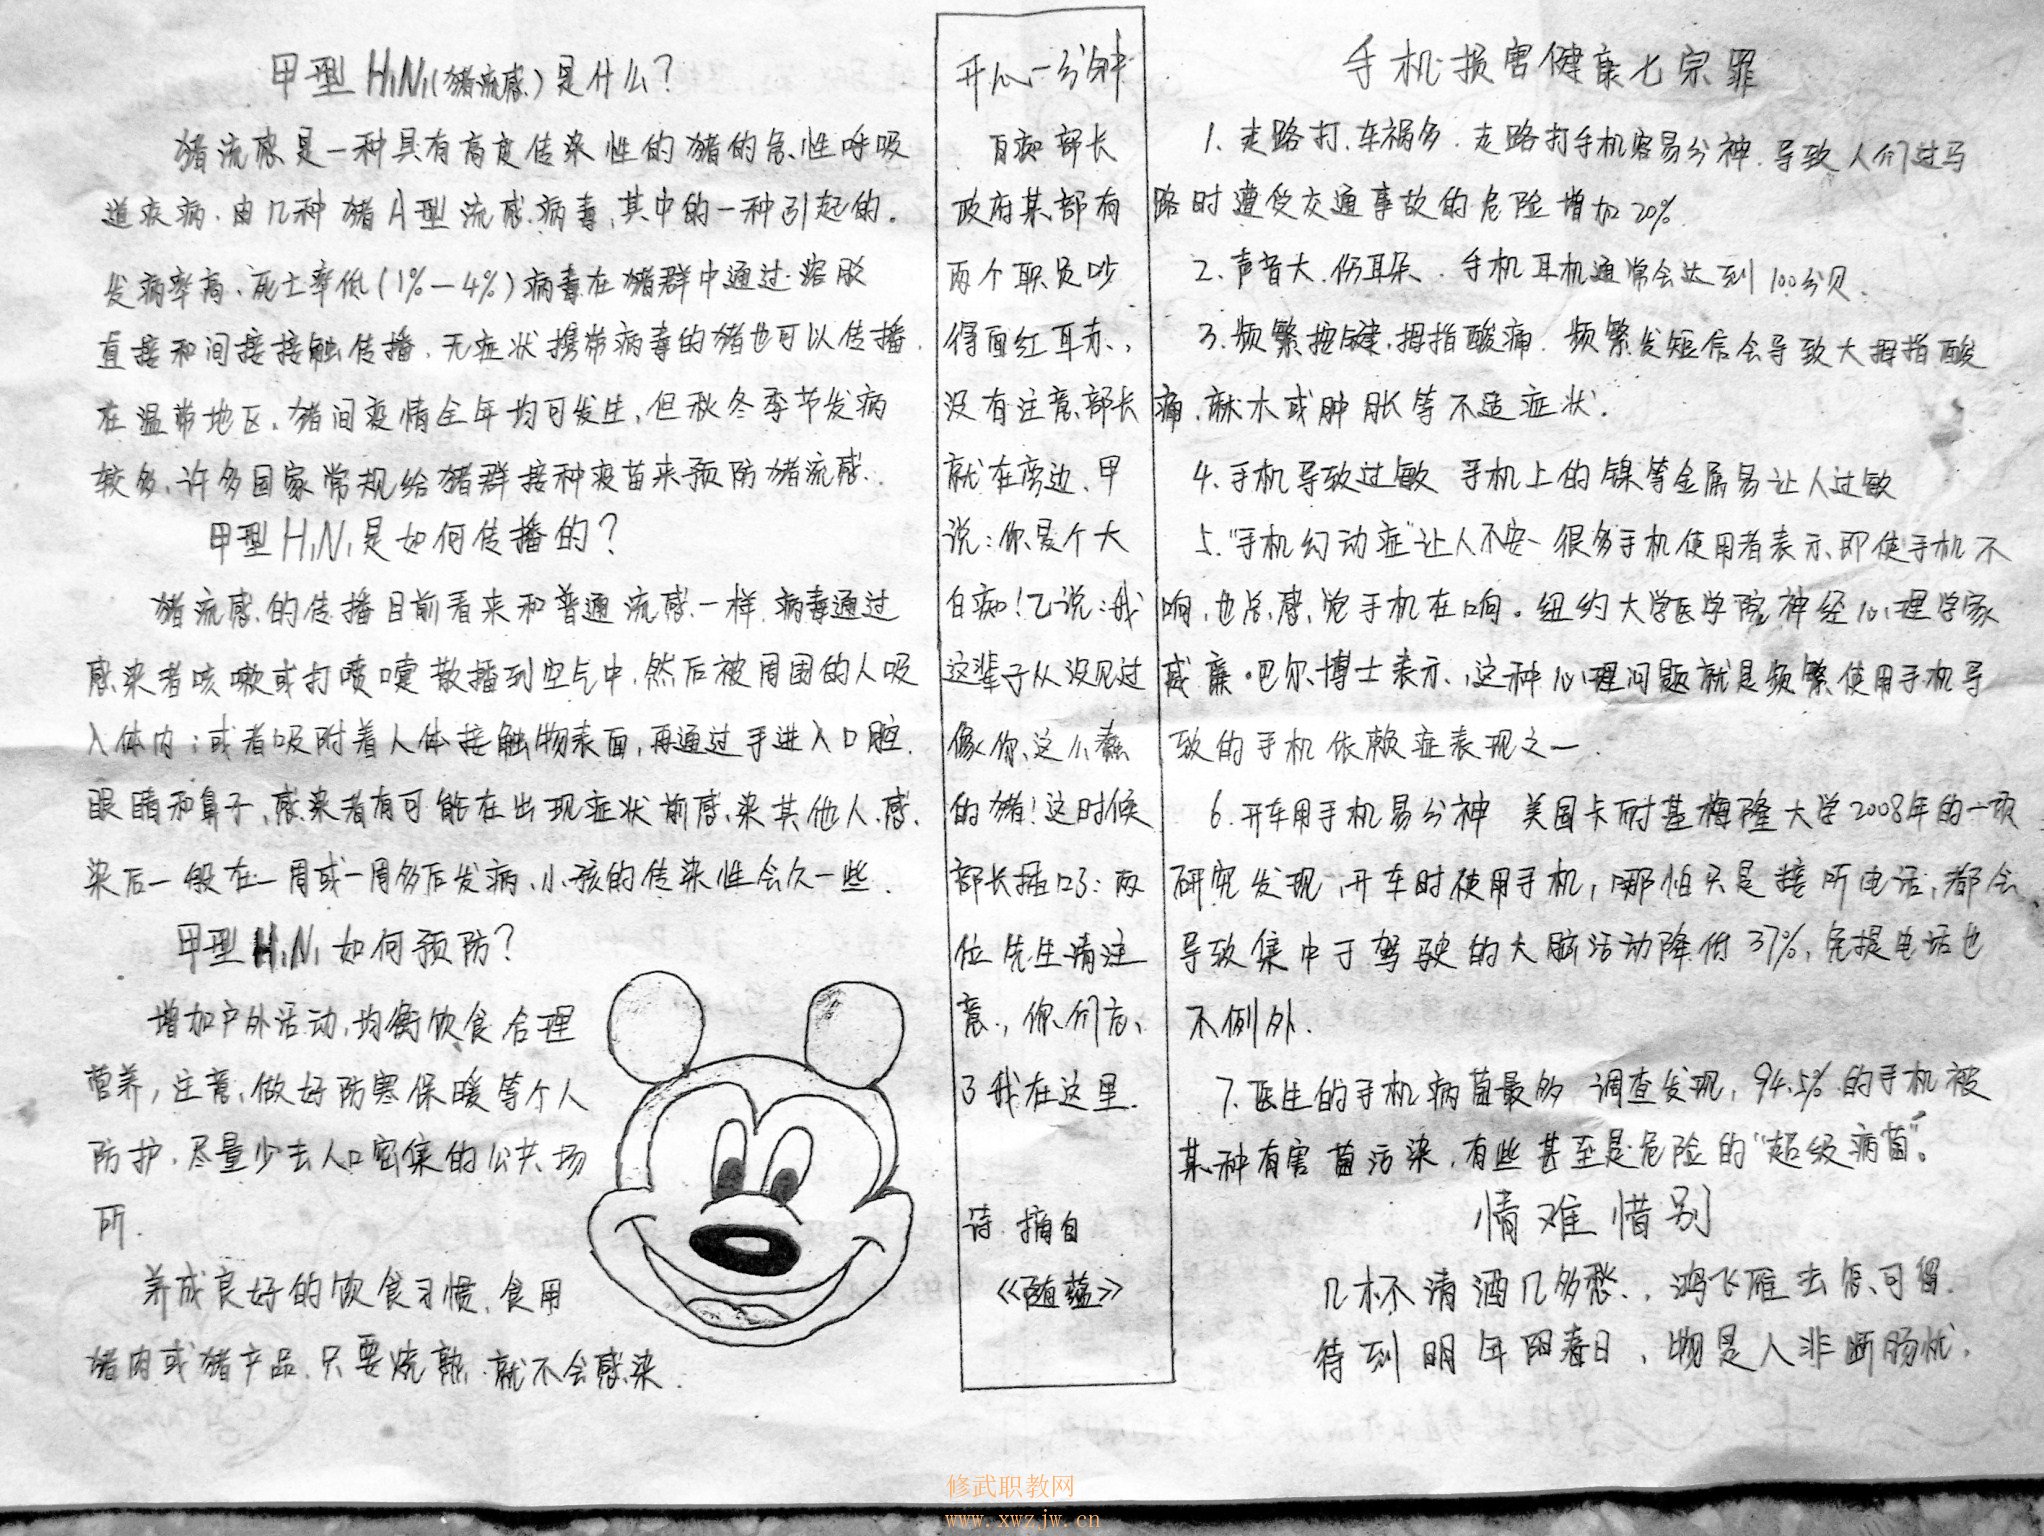 甲型H1N1(猪流感)是什么?
猪流感是一种具有高度传染性的猪的急性呼吸
道疾病.由几种猪A型流感病毒,其中的一种引起的。
发病率高、死亡率低(1%—4%)病毒在猪群中通过溶胶
直接和间接接触传播.无症状携带病毒的猪也可以传播.
在温带地区.猪间疫情全年均可发生,但秋冬季节发病
较多.许多国家常规给猪群接种疫苗来预防猪流感.
甲型H1N1是如何传播的?
猪流感的传播目前看来和普通流感一样.病毒通过
感染者咳嗽或打喷嚏散播到空气中,然后被周围的人吸
入体内;或者吸附着人体接触物表面,再通过手进入口腔.
眼睛和鼻子、感染者有可能在出现症状前感染其他人.感
染后一般在一周或一周多后发病、小孩的传染性会久一些.
甲型H1N1如何预防?
增加户外活动,均衡饮食合理
营养,注意做好防寒保暖等个人
防护.尽量少去人口密集的公共场
所.
养成良好的饮食习惯、食用
猪肉或猪产品.只要烧熟.就不会感染.
开心一分钟
白痴部长
政府某部有
两个职员吵
得面红耳赤,
没有注意部长
就在旁边.甲
说:你是个大
白痴!乙说:我
这辈子从没见过
像你这么蠢
的猪!这时候
部长插口了:两
位先生请注
意,你们忘
了我在这里.
诗 摘自
《随蕴》
手机损害健康七宗罪
1.走路打.车祸多.走路打手机容易分神.导致人们过马
路时遭受交通事故的危险增加20%.
2.声音大.伤耳朵.手机耳机通常会达到100分贝.
3.频繁按键,拇指酸痛.频繁发短信会导致大拇指酸
痛.麻木或肿胀等不适症状.
4.手机导致过敏 手机上的镍等金属易让人过敏
5."手机幻动症"让人不安、很多手机使用者表示即使手机不
响,也总感觉手机在响。纽约大学医学院神经心理学家
威廉·巴尔博士表示,这种心理问题就是频繁使用手机导
致的手机依赖症表现之一.
6.开车用手机易分神 美国卡耐基梅隆大学2008年的一项
研究发现,开车时使用手机,哪怕只是接听电话,都会
导致集中于驾驶的大脑活动降低37%,免提电话也
不例外.
7.医生的手机病菌最多 调查发现,94.5%的手机被
某种有害菌污染,有些甚至是危险的"超级病菌"。
情难惜别
几杯清酒几多愁,鸿飞雁去怎可留.
待到明年阳春日,物是人非断肠忧.
修武职教网
www.xwzjw.cn